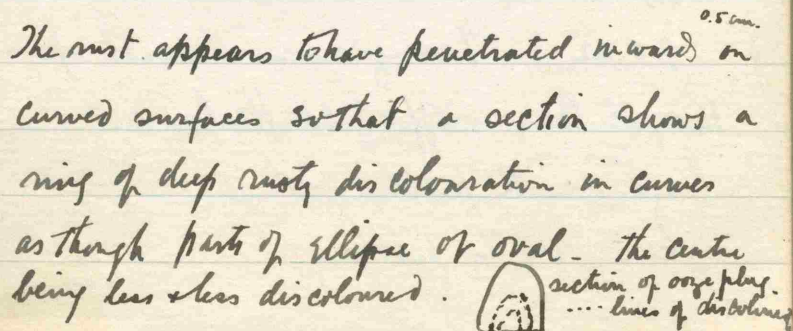 0.5 cm.
The rust appears to have penetrated inwards on
curved surfaces so that a section shows a
ring of deep rusty discolouration in curves
as though parts of ellipse of oval - the centre
being less & less discoloured.
section of ooze plug.
.... lines of discoloured